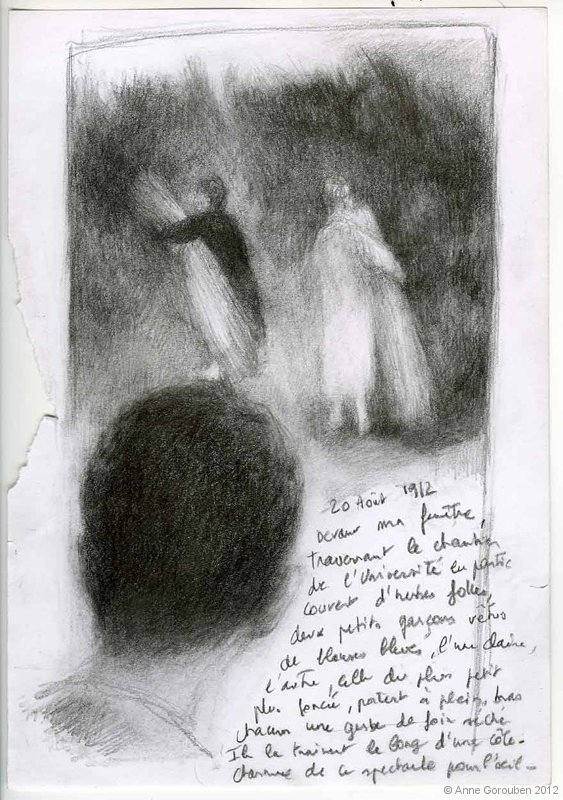 20 Août 1912
Devant ma fenêtre,
traversant le chantier
de l'Université en partie
couvert d'herbes folles,
deux petits garçons vêtus
de blouses bleues, l'une claire,
l'autre, celle du plus petit
plus foncée, portent à pleins bras
chacun une gerbe de foin séché
Ils la trainent le long d'une côte-
charme de ce spectacle pour l'oeil-
© Anne Gorouben 2012